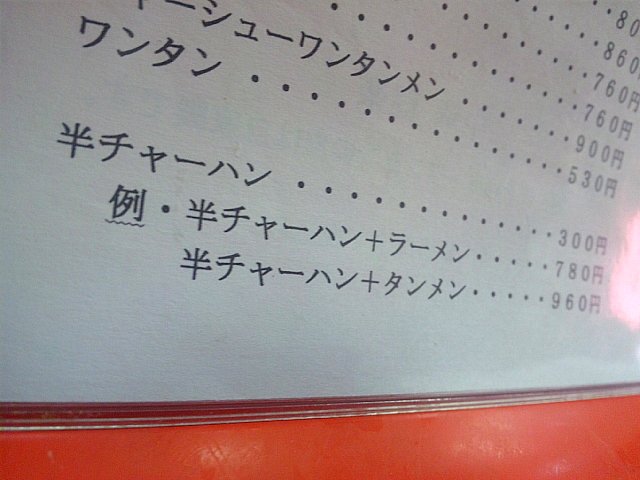 860円
760円
760円
ャーシューワンタンメン・・・・・・900円
ワンタン・・・・・・・・・・・・530円
半チャーハン・・・・・・・・・・・300円
例・半チャーハン+ラーメン・・・・・780円
半チャーハン+タンメン・・・・・960円